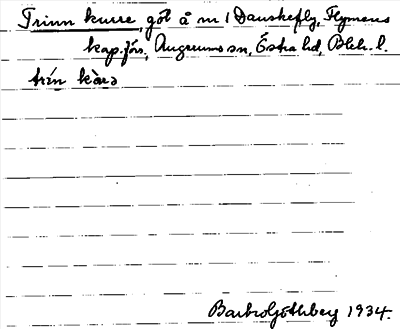 Trinn kurre, göl å nr 1 Danskefly, Flymens
kap.förs., Augerums sn, Östra hd, Blek. l.
trín kàrə
Barbro Göthberg 1934.